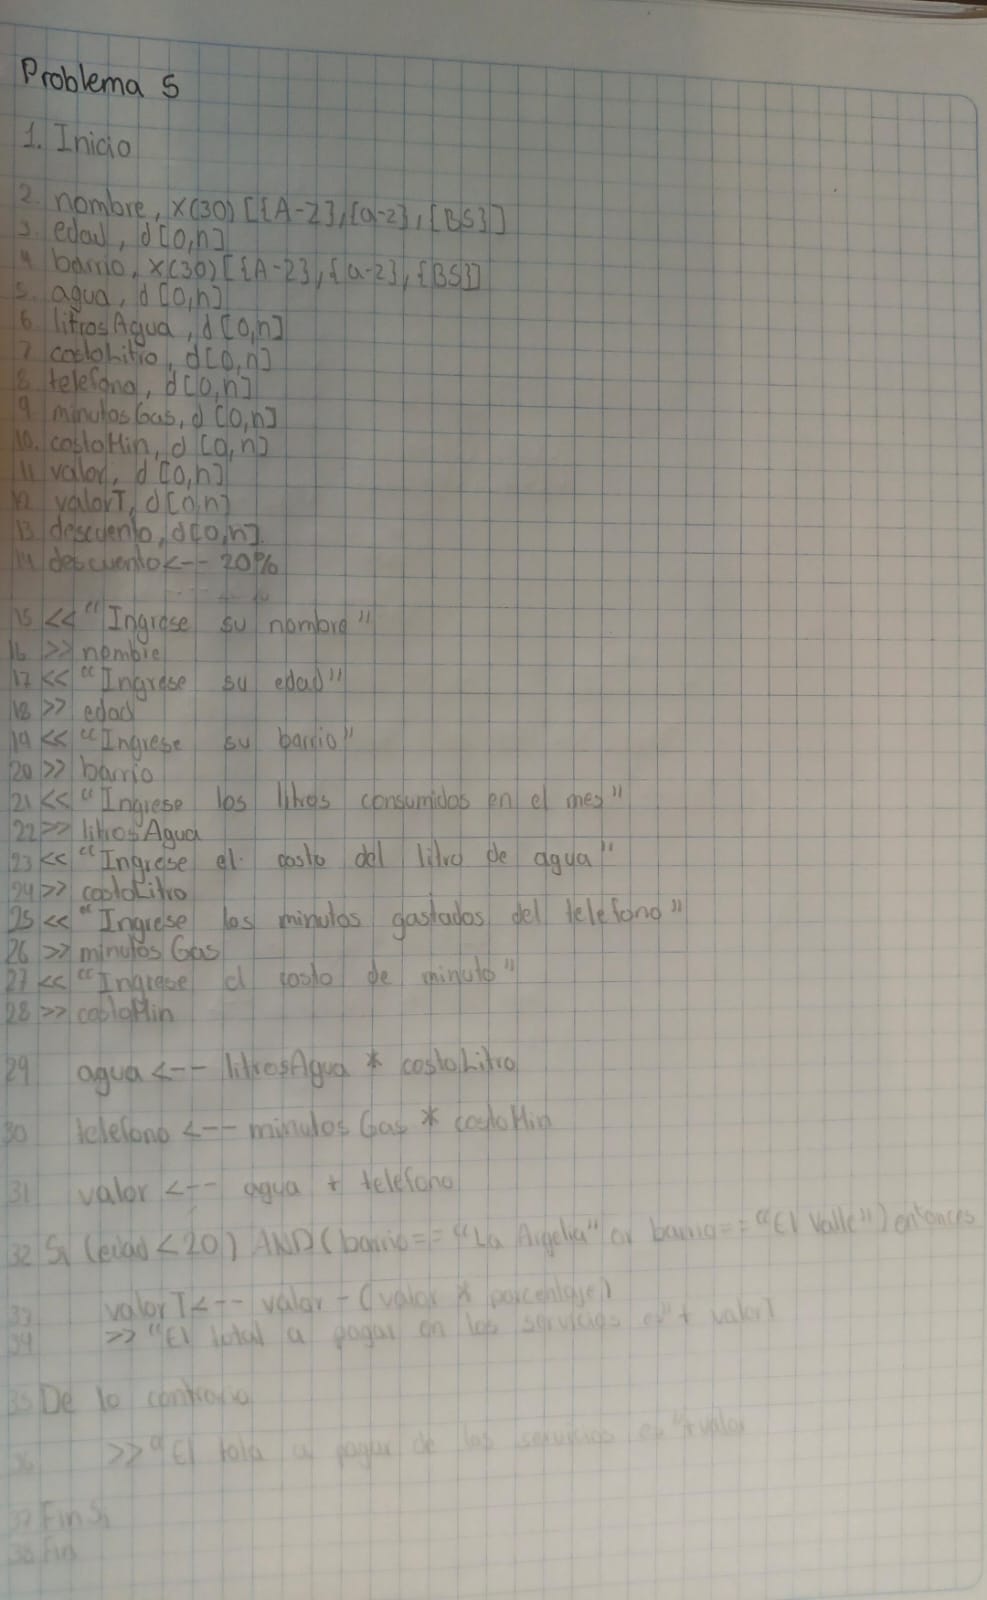 Problema 5
1. Inicio
2. nombre, x(30) [{A-Z},{a-z},{BS}]
3. edad, d[0,n]
4. barrio, x(30)[{A-Z},{a-z},{BS}]
5. agua, d[0,n]
6. litrosAgua, d[0,n]
7 costoLitro, d[0,n]
8. telefono, d[0,n]
9 minutosGas, d[0,n]
10. costoMin, d[0,n]
11 valor, d[0,n]
12 valorT, d[0,n]
13 descuento, d[0,n]
14 descuento<-- 20%
15 << "Ingrese su nombre"
16 >> nombre
17 << "Ingrese su edad"
18 >> edad
19 << "Ingrese su barrio"
20 >> barrio
21 << "Ingrese los litros consumidos en el mes"
22 >> litrosAgua
23 << "Ingrese el costo del litro de agua"
24 >> costoLitro
25 << "Ingrese los minutos gastados del telefono"
26 >> minutosGas
27 << "Ingrese el costo de minuto"
28 >> costoMin
29 agua <-- litrosAgua * costoLitro
30 telefono <-- minutosGas * costoMin
31 valor <-- agua + telefono
32 Si (edad<20) AND (barrio== "La Argelia" or barrio== "El Valle") entonces
33 valorT<-- valor - (valor * porcentaje)
34 >> "El total a pagar en los servicios es"+ valorT
35 De lo contrario
36 >> "El tota a pagar de los servicios es"+valor
37 Fin Si
38 Fin